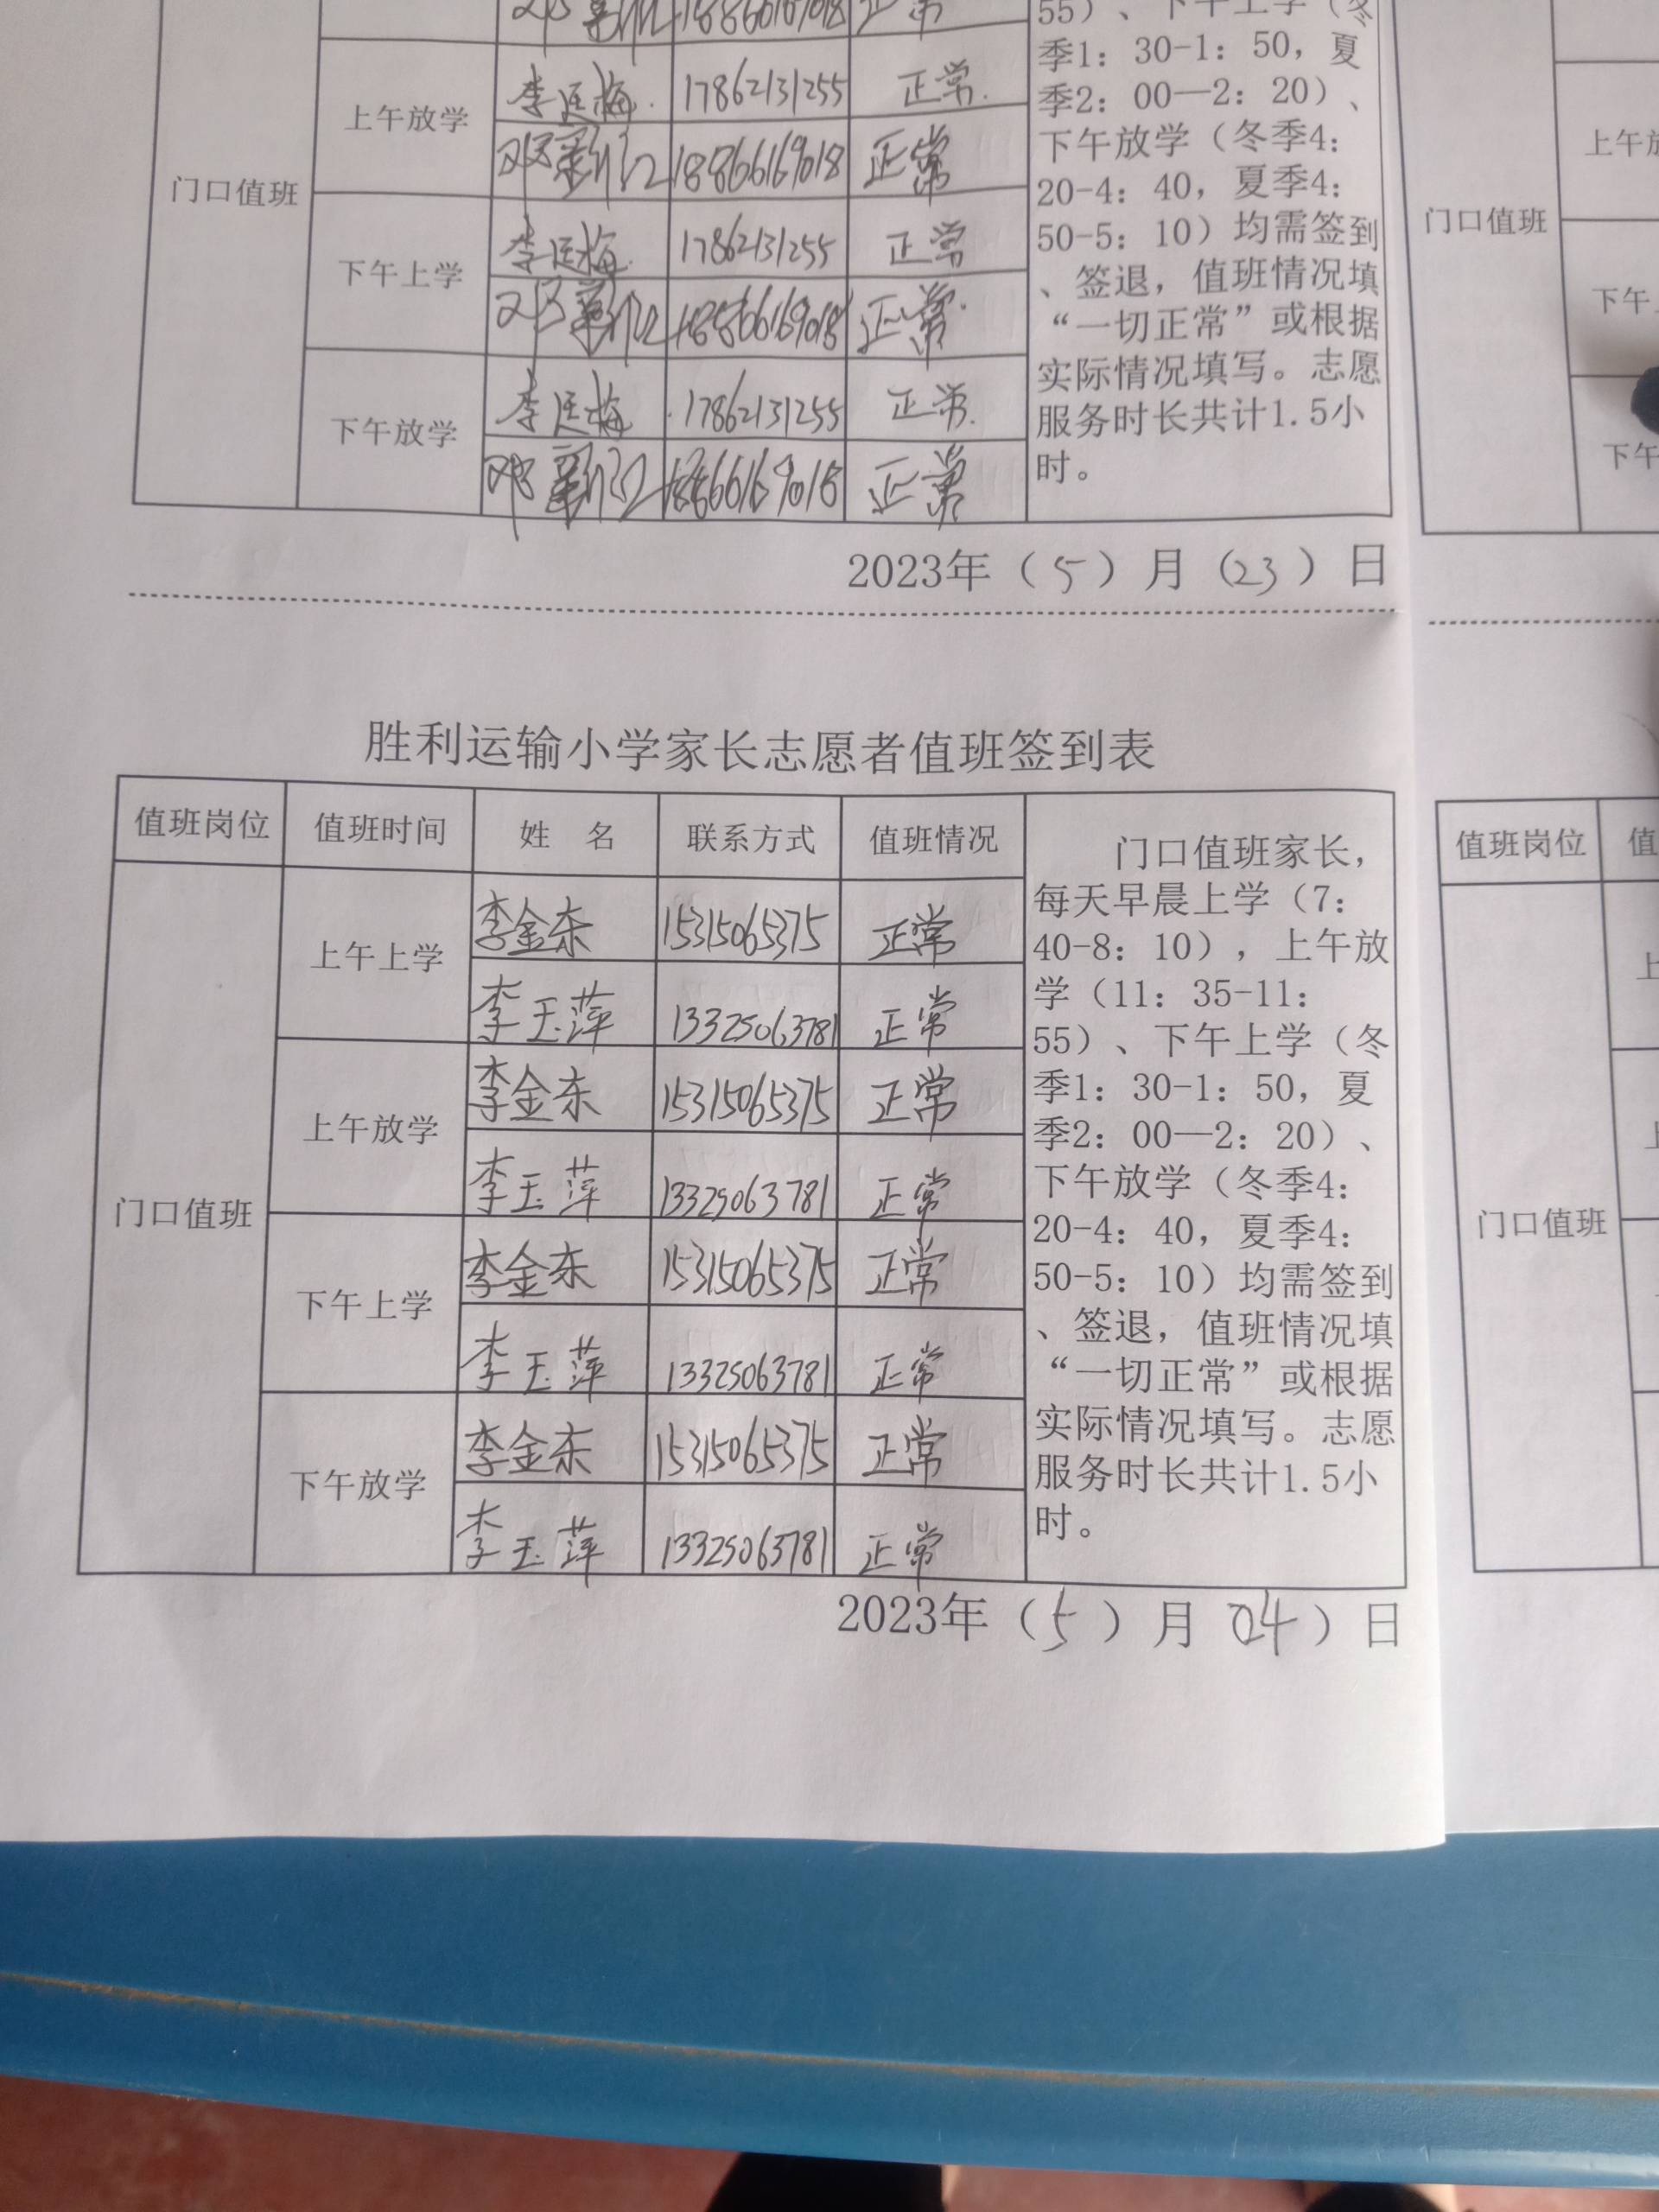 正常
55）、下午上学（冬
季1：30-1：50，夏
季2：00—2：20）、
下午放学（冬季4：
20-4：40，夏季4：
50-5：10）均需签到
、签退，值班情况填
“一切正常”或根据
实际情况填写。志愿
服务时长共计1.5小
时。
门口值班
上午放学
李廷梅 17862131255 正常
18866169018 正常
下午上学
李廷梅 17862131255 正常
18866169018 正常
下午放学
李廷梅 17862131255 正常
18866169018 正常
2023年（5）月（23）日
胜利运输小学家长志愿者值班签到表
值班岗位 值班时间 姓 名 联系方式 值班情况
门口值班
上午上学
李金东 15315065375 正常
李玉萍 13325063781 正常
上午放学
李金东 15315065375 正常
李玉萍 13325063781 正常
下午上学
李金东 15315065375 正常
李玉萍 13325063781 正常
下午放学
李金东 15315065375 正常
李玉萍 13325063781 正常
门口值班家长，
每天早晨上学（7：
40-8：10），上午放
学（11：35-11：
55）、下午上学（冬
季1：30-1：50，夏
季2：00—2：20）、
下午放学（冬季4：
20-4：40，夏季4：
50-5：10）均需签到
、签退，值班情况填
“一切正常”或根据
实际情况填写。志愿
服务时长共计1.5小
时。
2023年（5）月 04）日
门口值班
上午
下午
下午
值班岗位 值
门口值班